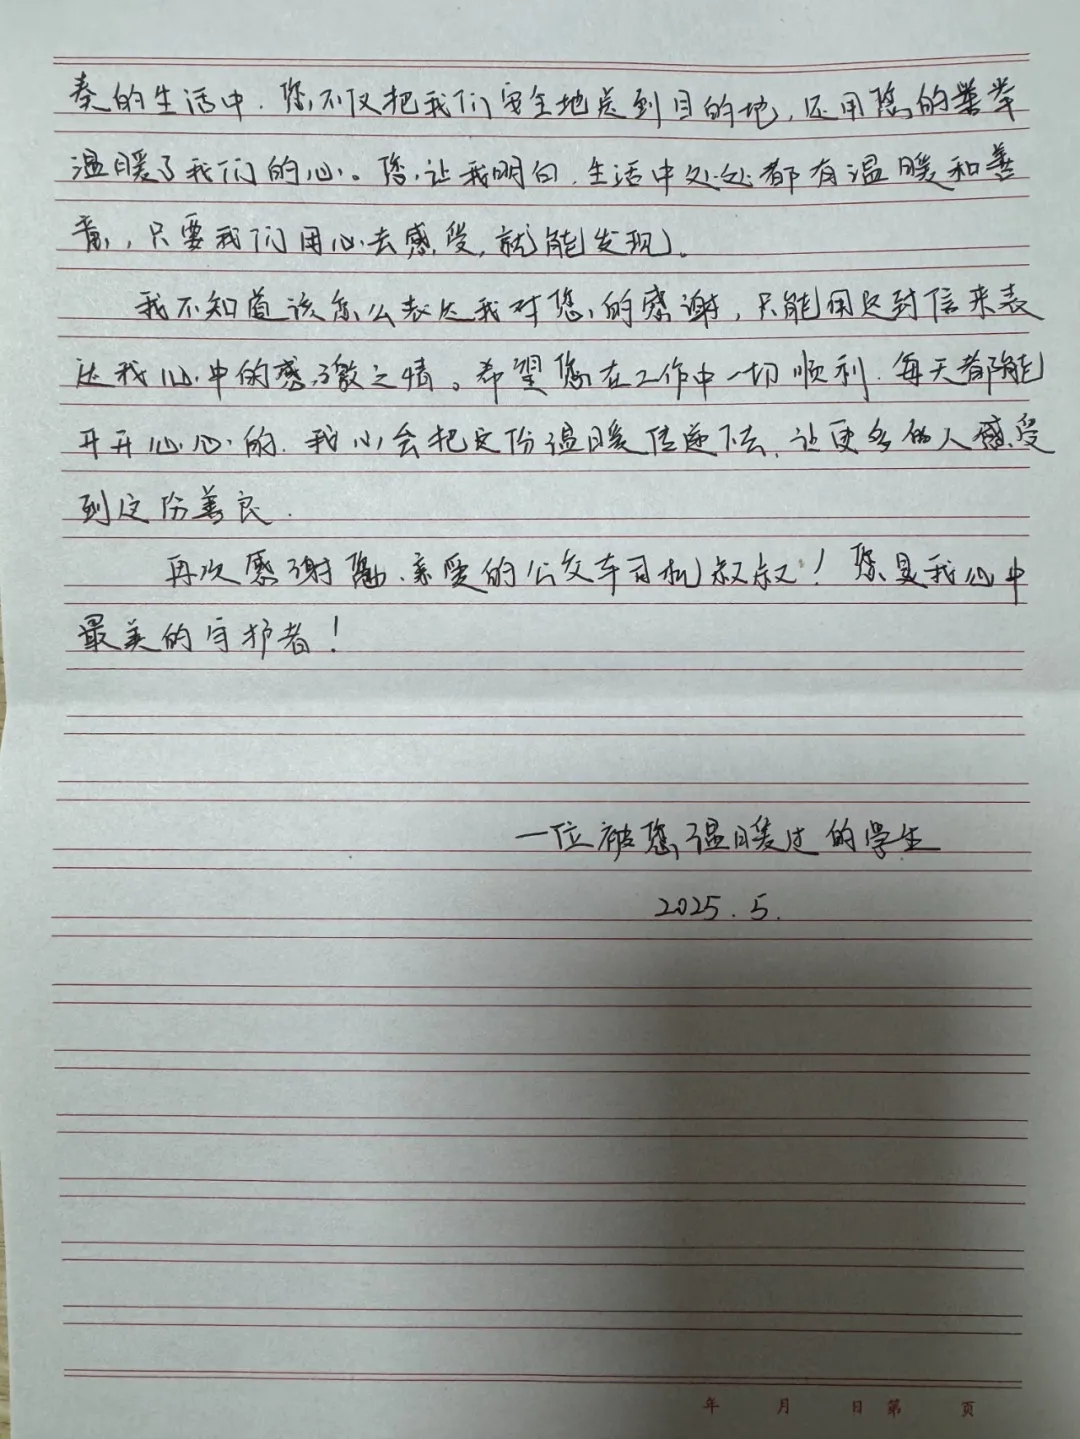 奏的生活中，您不仅把我们安全地送到目的地，还用您的善举
温暖了我们的心。您让我明白，生活中处处都有温暖和善
意，只要我们用心去感受，就能发现。
我不知道该怎么表达我对您的感谢，只能用这封信来表
达我心中的感激之情。希望您在工作中一切顺利，每天都能
开开心心的，我也会把这份温暖传递下去，让更多的人感受
到这份善良.
再次感谢您，亲爱的公交车司机叔叔！您是我心中
最美的守护者！
一位被您温暖过的学生
2025.5.
年 月 日 第 页